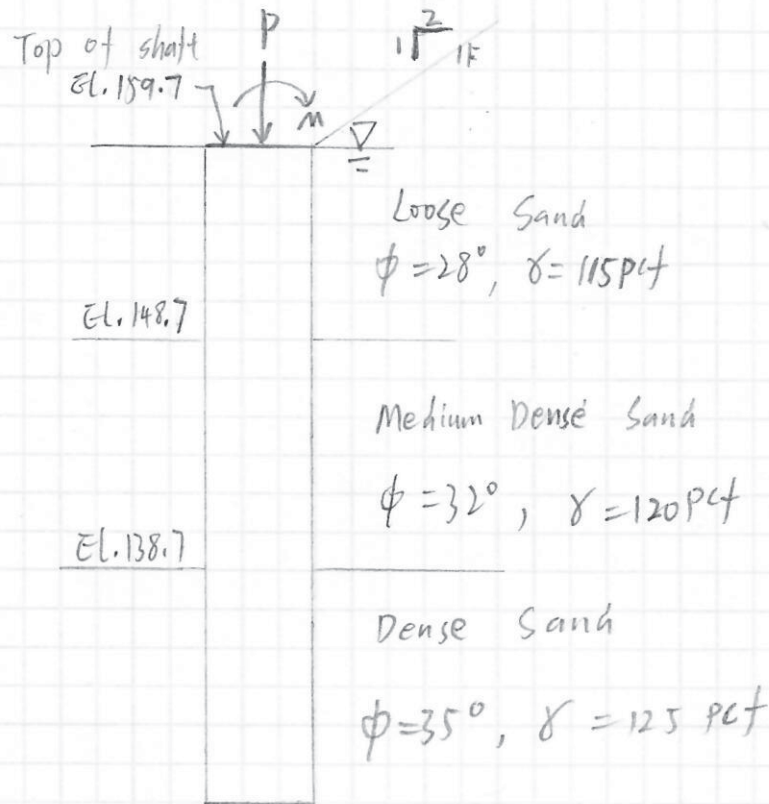 Top of shaft
El. 159.7
P
M
2
1
1F
Loose Sand
φ = 28°, γ = 115 pcf
El. 148.7
Medium Dense Sand
φ = 32°, γ = 120 pcf
El. 138.7
Dense Sand
φ = 35°, γ = 125 pcf